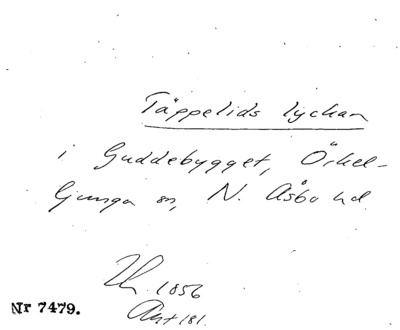 Täppelids lyckan
i Guddebygget, Örkel-
ljunga sn, N. Åsbo hd.
1856
Akt 181.
Nr 7479.